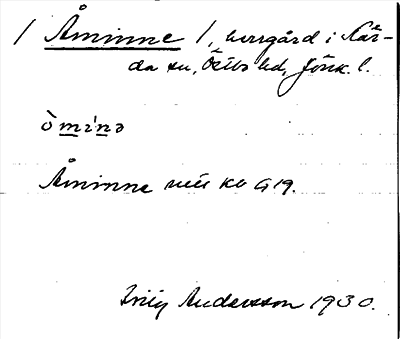 / Åminne /, herrgård i Når-
da sn, Östbo hd, Jönk. l.
òminə
Åminne KB G 19.
Andersson 1930.